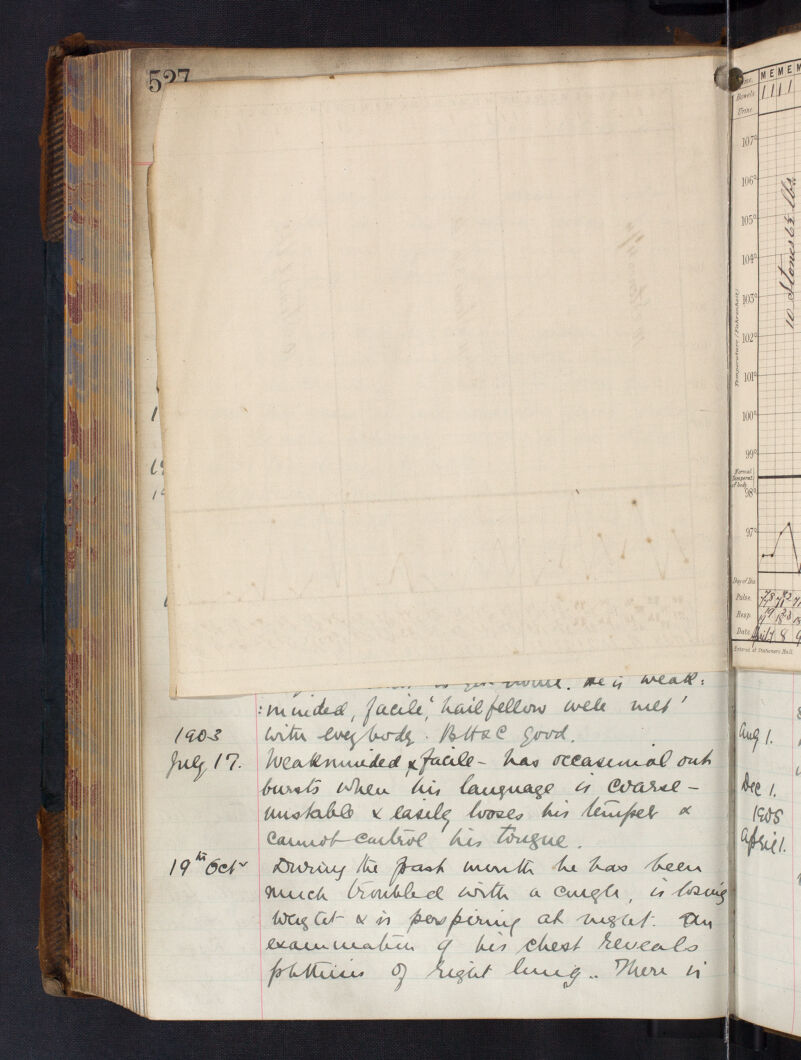 527
to get home. He is weak:
:minded, facile, 'hail fellow well met'
1903
with everybody. B H & C good.
July 17.
Weakminded & facile - has occasional out
bursts when his language is coarse -
unstable & easily looses his temper &
cannot control his tongue.
19th Octr
During the past month he has been
much troubled with a cough, is losing
weight & is perspiring at night. An
examination of his chest reveals
phthisis of right lung.. There is
M E M E M
Bowels
Urine
107°
106°
105°
104°
103°
102°
101°
100°
99°
98°
97°
Temperature (Fahrenheit)
10 Stones 6½ lbs.
Normal
Temperat.
of body
Day of Dis.
Pulse
Resp.
Date
April 7 8 9
Entered at Stationers Hall.
Aug 1.
Dec 1.
1905
April 1.